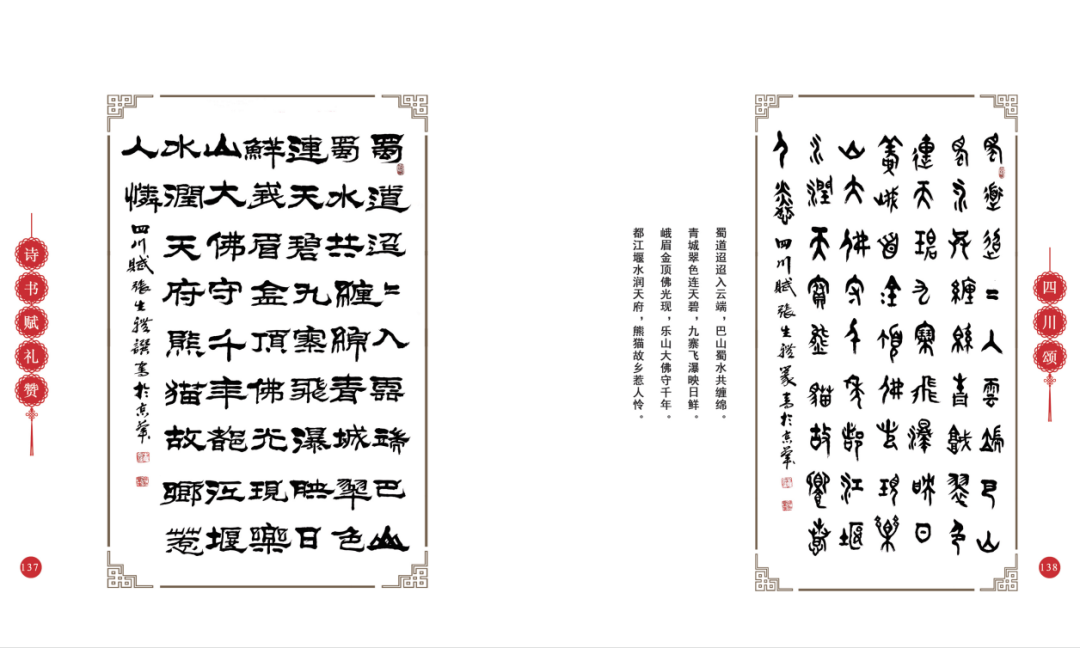 诗书赋礼赞
137
蜀道迢〻入雲端巴山
蜀水共纏綿青城翠色
連天碧九寨飛瀑映日
鮮峨眉金頂佛光現樂
山大佛守千年都江堰
水潤天府熊猫故鄉惹
人憐 四川賦張生禮撰書於京華
蜀道迢迢入云端，巴山蜀水共缠绵。
青城翠色连天碧，九寨飞瀑映日鲜。
峨眉金顶佛光现，乐山大佛守千年。
都江堰水润天府，熊猫故乡惹人怜。
蜀道迢〻入雲端巴山
蜀水共纏綿青城翠色
連天碧九寨飛瀑映日
鮮峨眉金頂佛光現樂
山大佛守千年都江堰
水潤天府熊貓故鄉惹
人憐 四川賦張生禮篆書於京華
四川颂
138